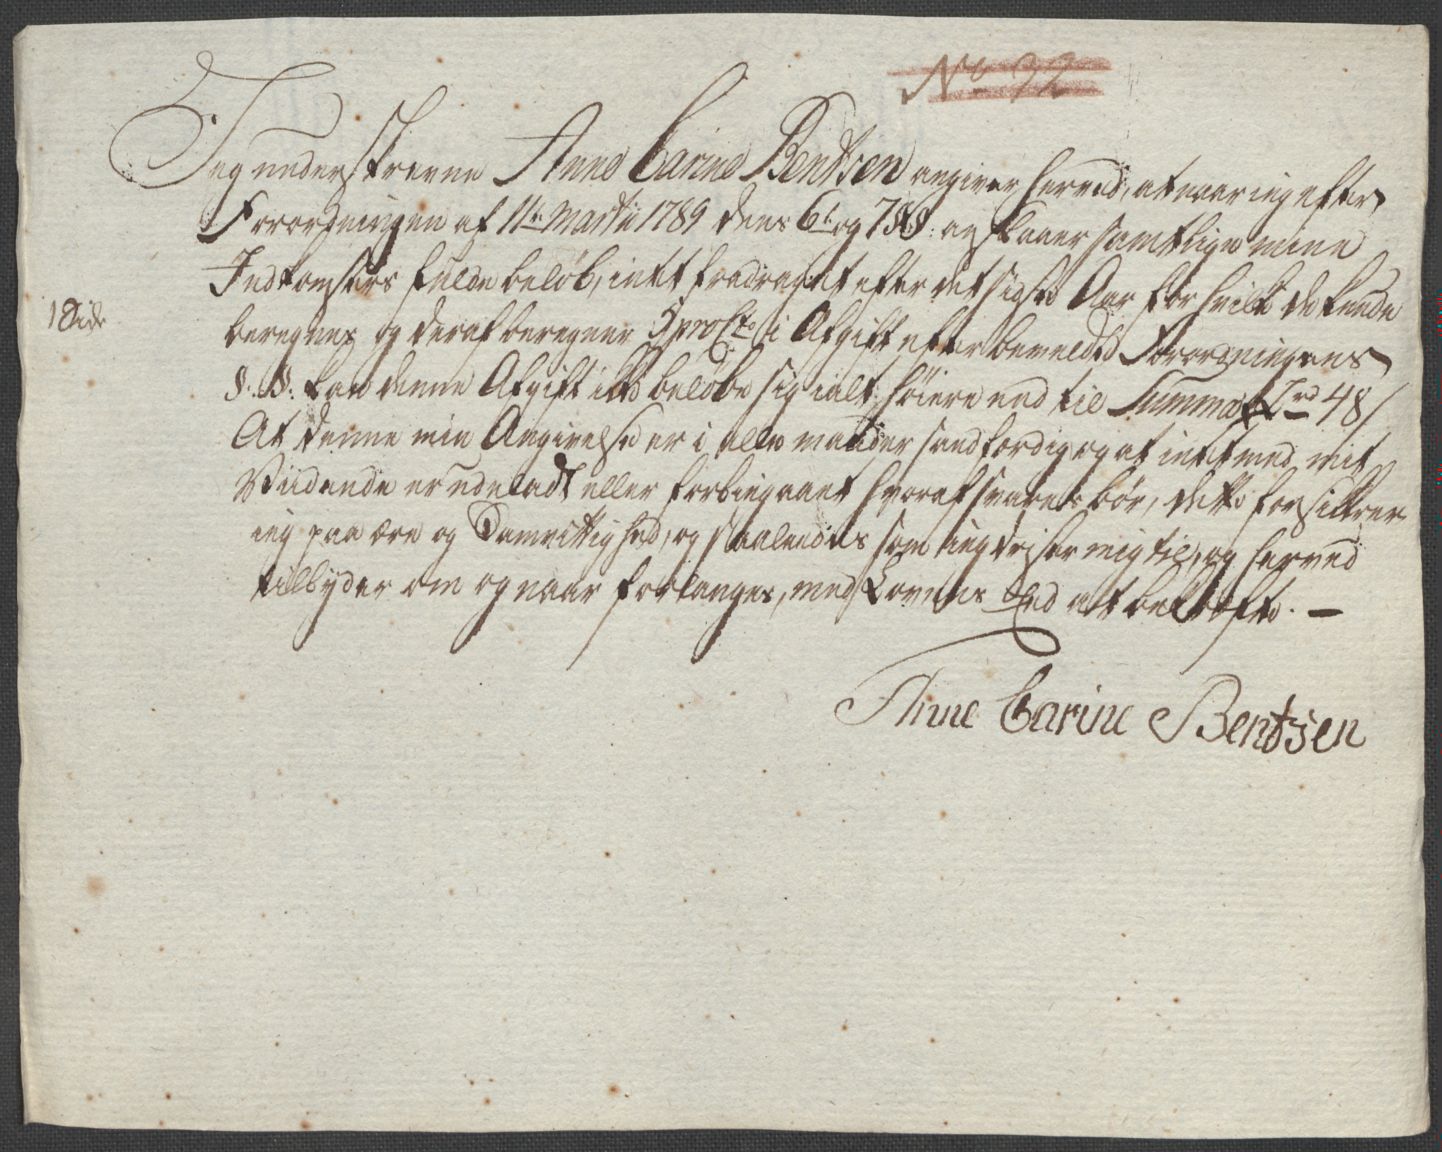 No 32
Jeg underskrevne Anne Carine Bendtsen angiver herved, at naar ieg efter
Forordningen af 11te Martii 1789 dens 6te og 7de §§: anslaaer samtlige mine
Indkomsters fulde beløb, intet fradraget efter det sidste Aar for hvilke de kunde
1 Side
beregnes og deraf beregner 5 pro Cto i Afgift efter bemeldte Forordningens
§. 8. kan denne Afgift ikke beløbe sig i alt høiere end til Summa rd 48 /
At denne min Angivelse er i alle maader sandfærdig og at intet med mit
Vidende er udeladt eller forbiegaaet hvoraf svares bør, dette forsikkrer
ieg paa ære og Samvittighed, og saaledes som ieg trøster mig til, og herved
tilbyder om og naar forlanges, med Lovens Eed at bekræfte. —
Anne Carine Bentzen